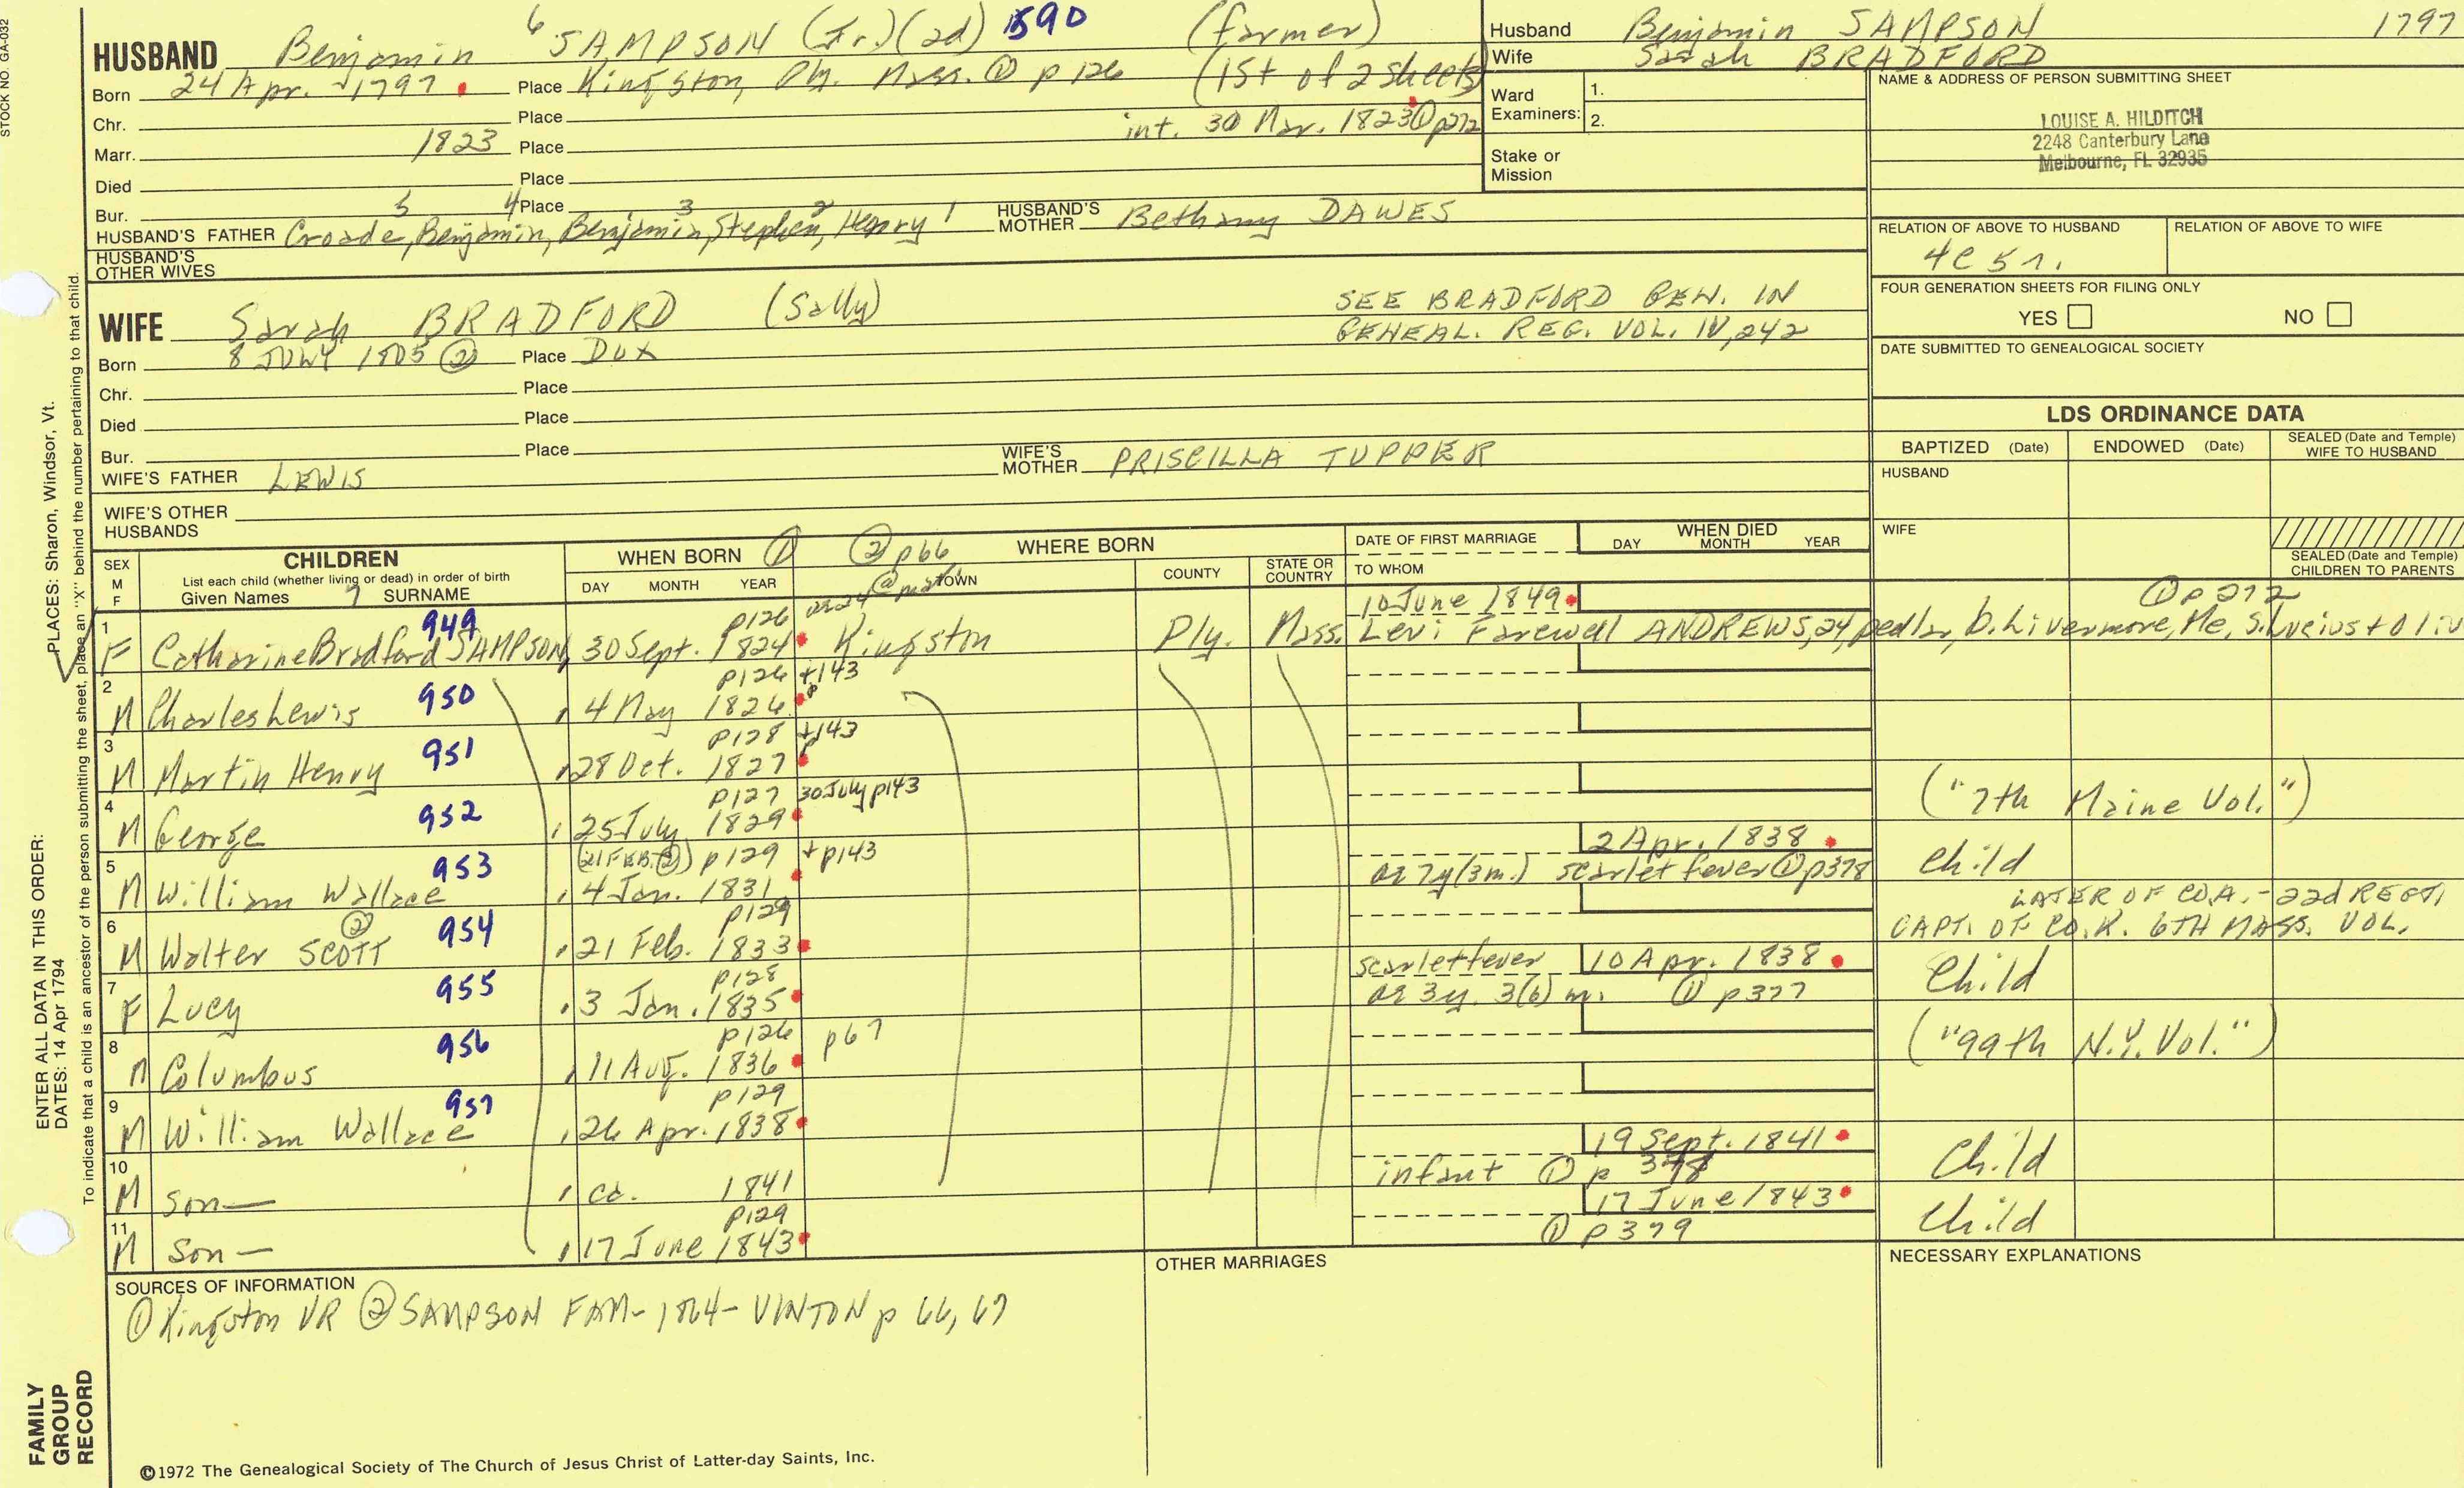 STOCK NO. GA-032
HUSBAND Benjamin 6 SAMPSON (Jr.)(2d) 590 (farmer)
Born 24 Apr. 1797 Place Kingston, Ply. Mass. ① p 126 (1st of 2 sheets)
Chr. Place int. 30 Mar. 1823 ① p272
Marr. 1823 Place
Died Place
Bur. Place
5 4 3 2 1
HUSBAND'S FATHER Croade, Benjamin, Benjamin, Stephen, Henry HUSBAND'S MOTHER Bethany DAWES
HUSBAND'S OTHER WIVES
Husband Benjamin SAMPSON 1797
Wife Sarah BRADFORD
Ward Examiners: 1.
2.
Stake or Mission
NAME & ADDRESS OF PERSON SUBMITTING SHEET
LOUISE A. HILDITCH
2248 Canterbury Lane
Melbourne, FL 32935
RELATION OF ABOVE TO HUSBAND RELATION OF ABOVE TO WIFE
4C 5r.
FOUR GENERATION SHEETS FOR FILING ONLY
YES NO
DATE SUBMITTED TO GENEALOGICAL SOCIETY
WIFE Sarah BRADFORD (Sally) SEE BRADFORD GEN. IN
GENEAL. REG. VOL. IV, 242
Born 8 JULY 1805 ② Place DUX
Chr. Place
Died Place
Bur. Place
WIFE'S FATHER LEWIS WIFE'S MOTHER PRISCILLA TUPPER
WIFE'S OTHER HUSBANDS
LDS ORDINANCE DATA
BAPTIZED (Date) ENDOWED (Date) SEALED (Date and Temple) WIFE TO HUSBAND
HUSBAND
WIFE
SEALED (Date and Temple) CHILDREN TO PARENTS
SEX M F
CHILDREN
List each child (whether living or dead) in order of birth
Given Names 7 SURNAME
WHEN BORN ① ② p66
DAY MONTH YEAR
WHERE BORN
TOWN COUNTY STATE OR COUNTRY
DATE OF FIRST MARRIAGE
TO WHOM
WHEN DIED
DAY MONTH YEAR
1 949 p126 ae 24 @ m 10 June 1849 ① p272
F Catharine Bradford SAMPSON, 30 Sept. 1824 Kingston Ply. Mass. Levi Farewell ANDREWS, 24, pedlar, b. Livermore, Me, S. Lucius + Oliv
2 950 p126 + p143
M Charles Lewis 4 May 1826
3 951 p128 + p143
M Martin Henry 28 Oct. 1827
4 952 p127 30 July p143 ("7th Maine Vol.")
M George 25 July 1829
5 953 (21 FEB. ②) p129 + p143 2 Apr. 1838
M William Wallace 4 Jan. 1831 ae 7y (3m.) scarlet fever ① p378 Child
6 ② 954 p129 LATER OF CO. A. - 22d REGT,
M Walter SCOTT 21 Feb. 1833 CAPT. OF CO. K. 6TH MASS. VOL.
7 955 p128 scarlet fever 10 Apr. 1838
F Lucy 3 Jan. 1835 ae 3y. 3(6) m. ① p377 Child
8 956 p126 p67 ("99th N.Y. Vol.")
M Columbus 11 Aug. 1836
9 957 p129
M William Wallace 26 Apr. 1838
10 19 Sept. 1841
M son— ca. 1841 infant ① p 378 Child
11 p129 17 June 1843
M son— 17 June 1843 ① p379 Child
SOURCES OF INFORMATION
① Kingston VR ② SAMPSON FAM - 1864 - VINTON p 66, 67
OTHER MARRIAGES
NECESSARY EXPLANATIONS
©1972 The Genealogical Society of The Church of Jesus Christ of Latter-day Saints, Inc.
FAMILY GROUP RECORD
ENTER ALL DATA IN THIS ORDER:
DATES: 14 Apr 1794
PLACES: Sharon, Windsor, Vt.
To indicate that a child is an ancestor of the person submitting the sheet, place an "X" behind the number pertaining to that child.